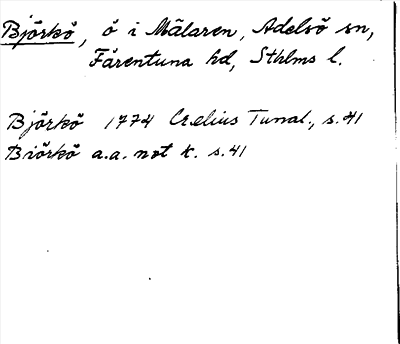 Björkö, ö i Mälaren, Adelsö sn,
Färentuna hd, Sthlms l.
Björkö 1774 Crælius Tunal., s. 41
Biörkö a.a. not k. s. 41